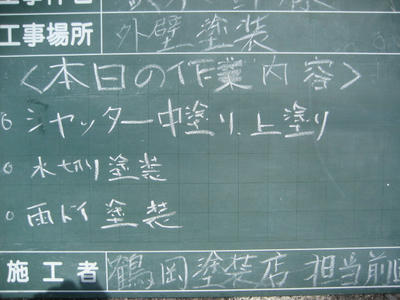 工事場所 外壁塗装
<本日の作業内容>
○シャッター中塗り、上塗り
○水切り塗装
○雨ドイ塗装
施工者 鶴岡塗装店 担当前田